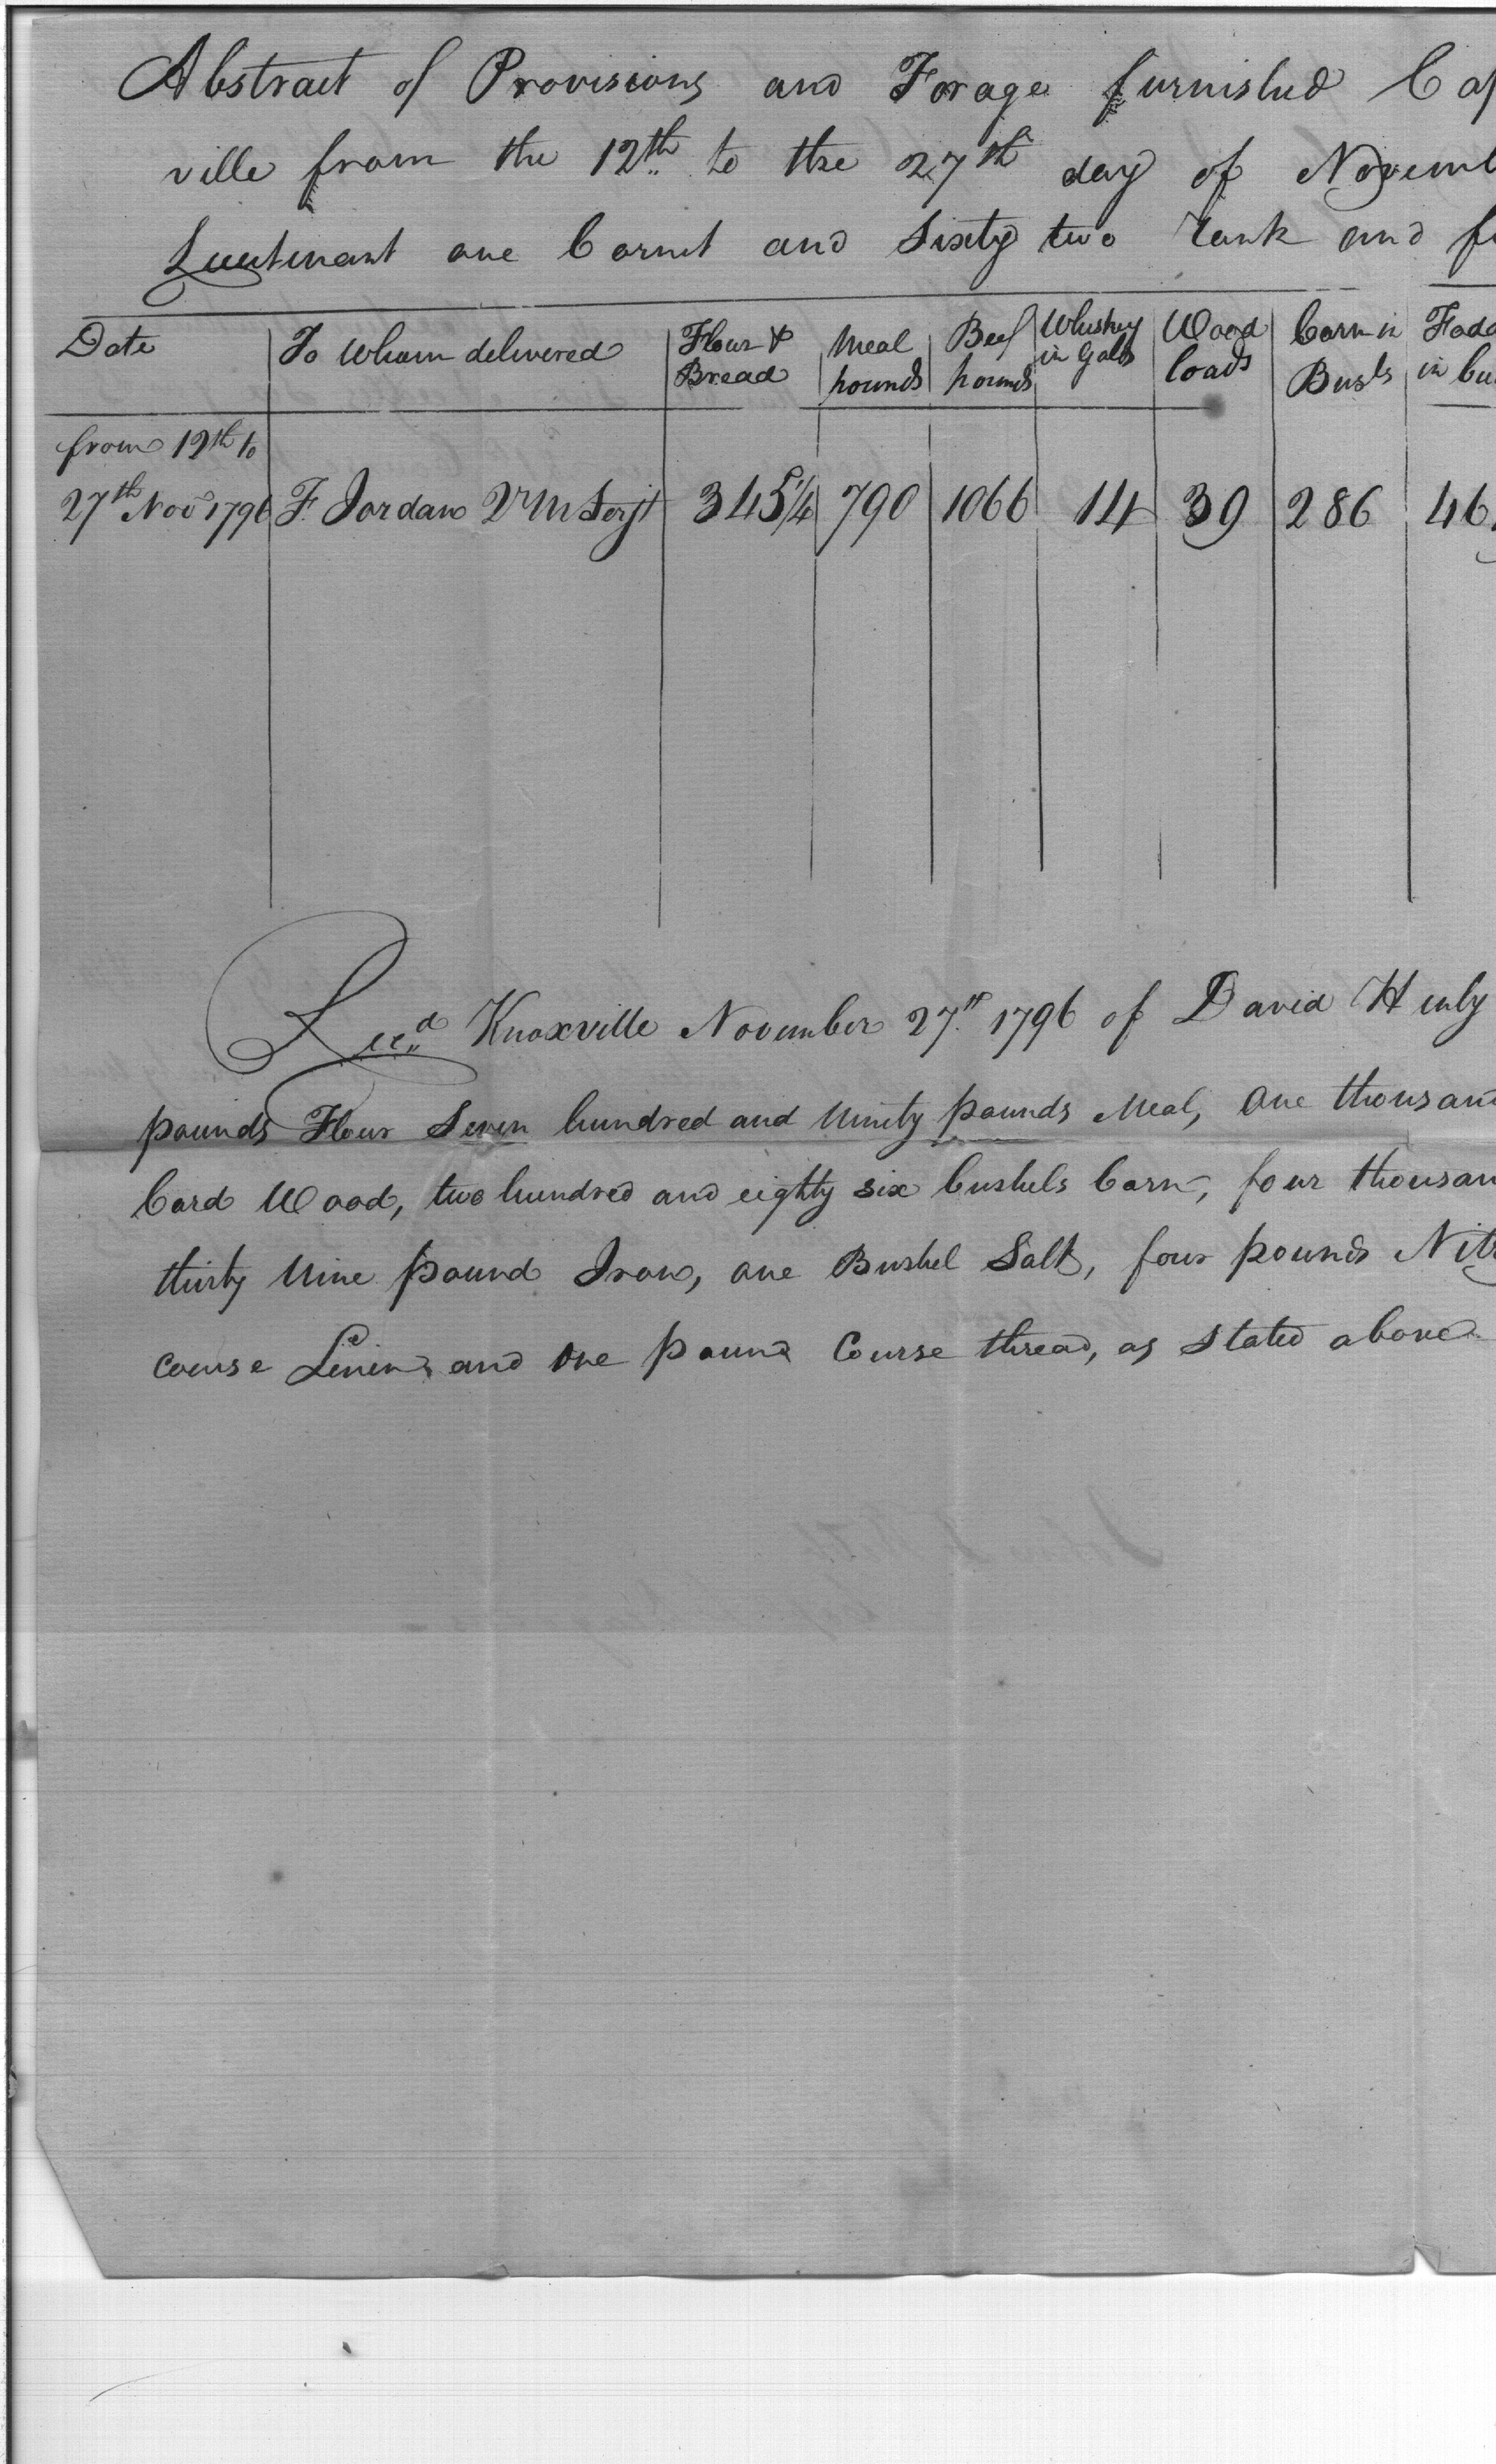 Abstract of Provisions and Forage furnished Cap
ville from the 12th to the 27th day of Novemb
Lieutenant one Cornet and Sixty two rank and fi
Date | To Whom delivered | Flour & Bread | Meal pounds | Beef pounds | Whiskey in Galls | Wood loads | Corn in Busls | Fodd in bu
from 12th to
27th Nov 1796 | F. Jordan Qr M Serjt | 345 1/4 | 790 | 1066 | 14 | 39 | 286 | 46
Recd Knoxville November 27th 1796 of David Henly
pounds Flour Seven hundred and Ninety pounds Meal, One thousand
Cord Wood, two hundred and eighty six bushels Corn, four thousan
thirty Nine pound Iron, one Bushel Salt, four pounds Nit
course Linen and One pound Course thread, as stated above